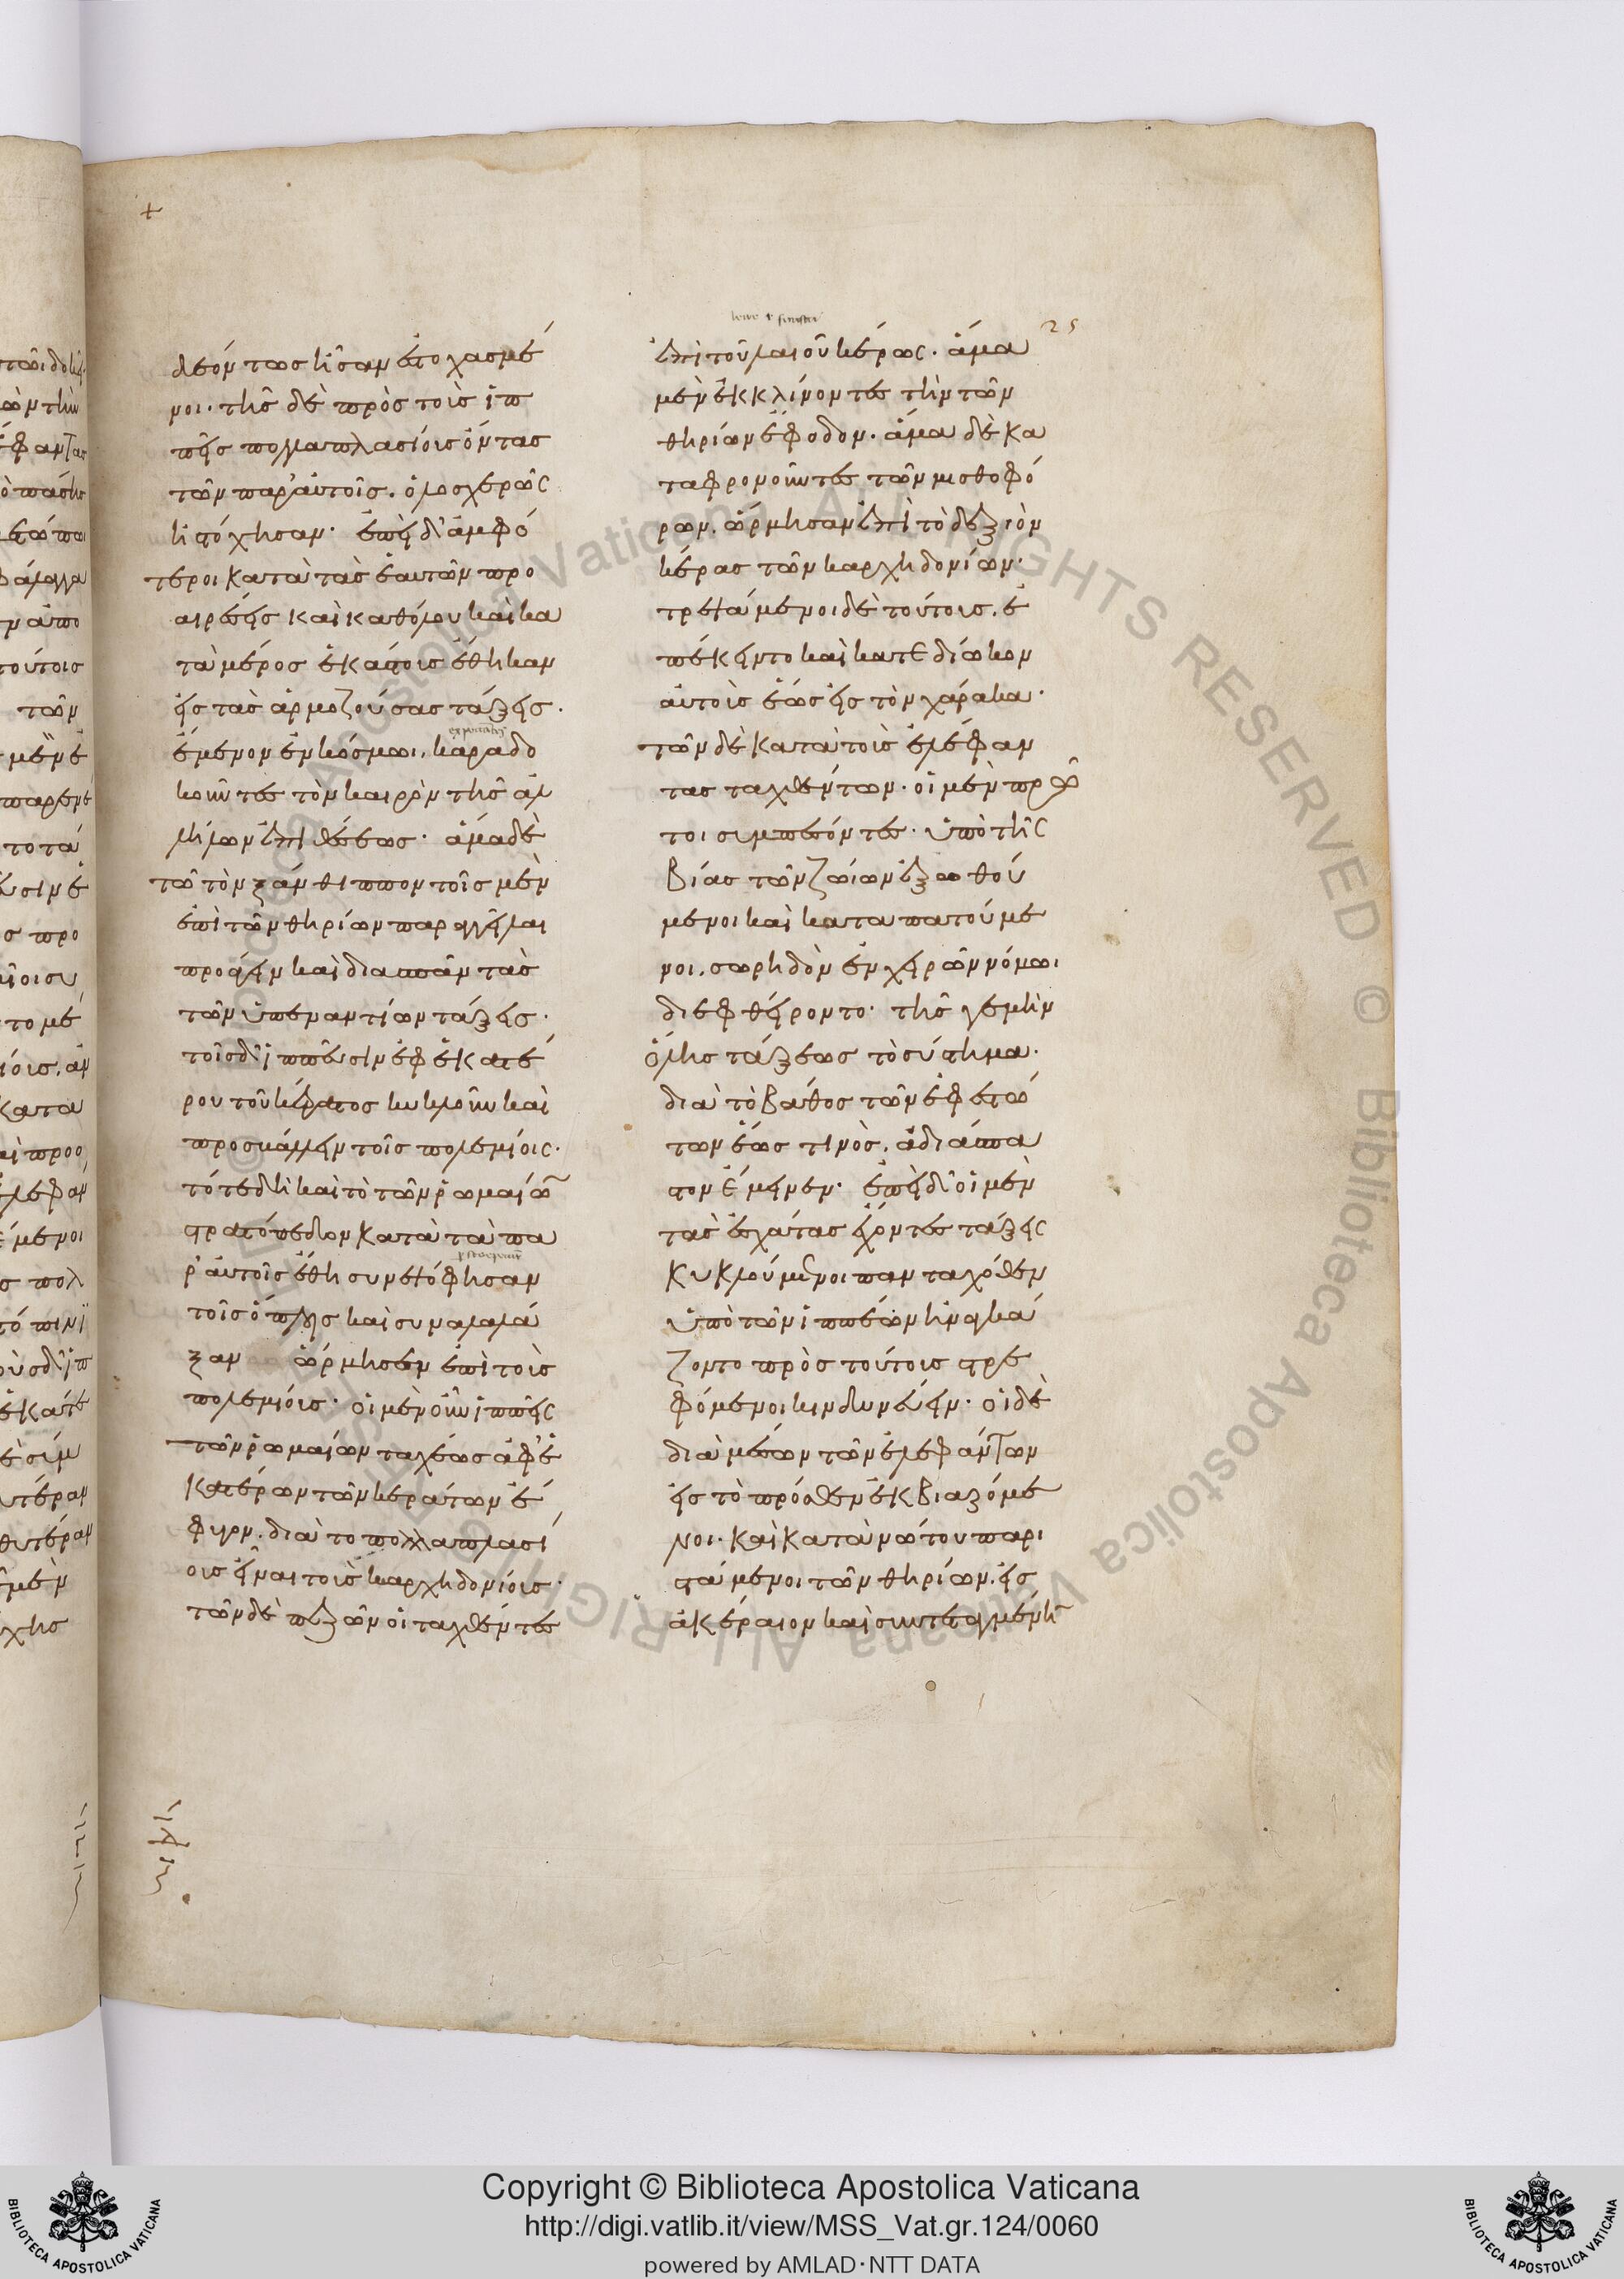 25
δεόντως ἦσαν ἐστοχασμέ
νοι· τῆς δὲ πρὸς τοὺς ἱπ
πεῖς πολλαπλασίους ὄντας
τῶν παρ' αὐτοῖς. ὁλοσχερῶς
ἠστόχησαν· ἐπεὶ δ' ἀμφό
τεροι κατὰ τὰς ἑαυτῶν προ
αιρέσεις καὶ καθόλου καὶ κα
τὰ μέρος ἑκάστους ἔθηκαν
εἰς τὰς ἁρμοζούσας τάξεις.
ἔμενον ἐν κόσμωι. καραδο
κοῦντες τὸν καιρὸν τῆς ἀλ
λήλων ἐπιθέσεως· ἅμα δὲ
τῶ τὸν ξάνθιππον τοῖς μὲν
ἐπὶ τῶν θηρίων παραγγεῖλαι
προάγειν καὶ διασπᾶν τὰς
τῶν ὑπεναντίων τάξεις.
τοῖς δ' ἱππεῦσιν ἐφ ἑκατέ
ρου τοῦ κέρατος κυκλοῦν καὶ
προσβάλλειν τοῖς πολεμίοις.
τότε δὴ καὶ τὸ τῶν ῥωμαίω̃
στρατόπεδον κατὰ τὰ πα
ρ' αὐτοῖς ἔθη συνεψόφησαν
τοῖς ὅπλοις καὶ συναλαλά
ξαν ὥρμησεν ἐπὶ τοὺς
πολεμίους· οἱ μὲν οὖν ἱππεῖς
τῶν ῥωμαίων ταχέως ἀφ' ἑ
κατέρων τῶν κεράτων ἔ
φυγον. διὰ το πολλαπλασί
ους εἶναι τοὺς καρχηδονίους·
τῶν δὲ πεζῶν οἱ ταχθέντες
ἐπὶ τοῦ λαιοῦ κέρως. ἅμα
μὲν ἐκκλίνοντες τὴν τῶν
θηρίων ἔφοδον. ἅμα δὲ κα
ταφρονοῦντες τῶν μισθοφό
ρων. ὥρμησαν ἐπὶ τὸ δεξιὸν
κέρας τῶν καρχηδονίων·
τρεψάμενοι δὲ τούτους. ἐ
πέκειντο καὶ κατεδίωκον
αὐτοὺς ἕως εἰς τὸν χάρακα·
τῶν δὲ κατὰ τοὺς ἐλέφαν
τας ταχθέντων. οἱ μὲν πρῶ
τοι συμπεσόντες. ὑπὸ τῆς
βίας τῶν ζώιων ἐξωθού
μενοι καὶ καταπατούμε
νοι. σωρηδὸν ἐν χειρῶν νόμωι
διεφθείροντο· τῆς γε μὴν
ὅλης τάξεως τὸ σύστημα.
διὰ τὸ βάθος τῶν ἐφεστώ
των ἕως τινὸς. ἀδιάσπα
στον ἔμεινεν· ἐπεὶ δ' οἱ μὲν
τὰς ἐσχάτας ἔχοντες τάξεις
κυκλούμενοι πανταχόθεν
ὑπὸ τῶν ἱππέων ἠναγκά
ζοντο πρὸς τούτους στρε
φόμενοι κινδυνεύειν· οἱ δὲ
διὰ μέσων τῶν ἐλεφάντων
εἰς τὸ πρόσθεν ἐκβιαζόμε
νοι. καὶ κατὰ νώτου παρι
στάμενοι τῶν θηρίων. εἰς
ἀκέραιον καὶ συντεταγμένη̃
Copyright © Biblioteca Apostolica Vaticana
http://digi.vatlib.it/view/MSS_Vat.gr.124/0060
powered by AMLAD·NTT DATA